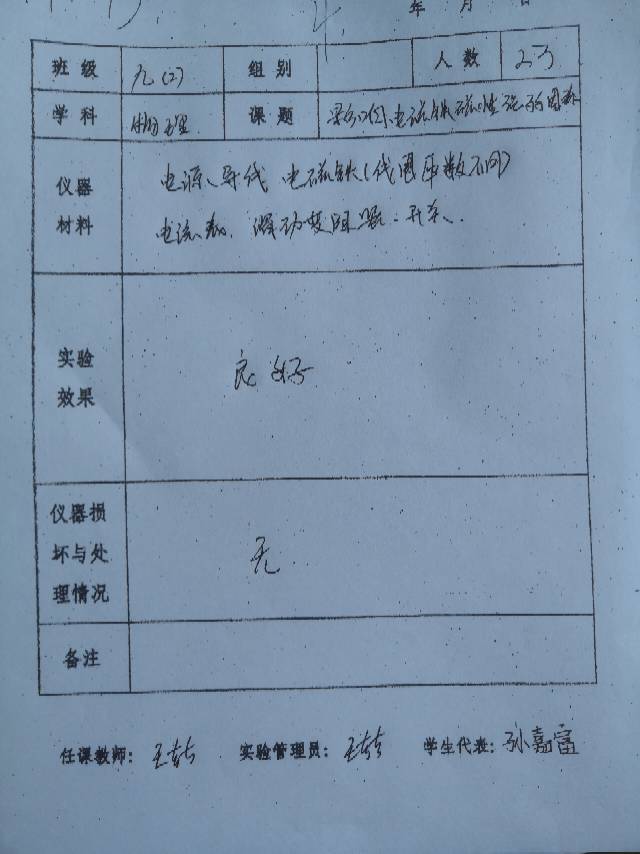 年 月 日
班级 九(2) 组别 人数 23
学科 物理 课题 影响电磁铁磁性强弱因素
仪器材料
电源、导线 电磁铁(线圈匝数不同)
电流表、滑动变阻器、开关、
实验效果
良好
仪器损坏与处理情况
无
备注
任课教师: 实验管理员: 学生代表: 孙嘉富